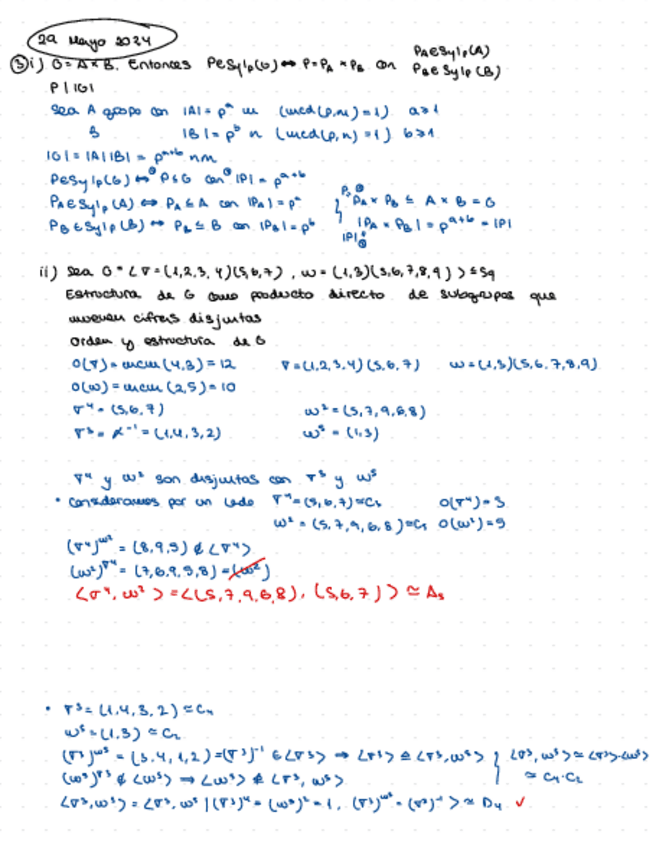 29 Mayo 2024
③ i) G = A × B. Entonces P∈Syl_p(G) ↔ P = P_A × P_B con P_A∈Syl_p(A) P_B∈Syl_p(B)
P | |G|
Sea A grupo con |A| = p^a m (mcd(p,m) = 1) a≥1
B |B| = p^b n (mcd(p,n) = 1) b≥1
|G| = |A||B| = p^{a+b} nm
P∈Syl_p(G) ↔ P≤G con |P| = p^{a+b}
P_A∈Syl_p(A) ↔ P_A≤A con |P_A| = p^a } P_A × P_B ≤ A × B = G
P_B∈Syl_p(B) ↔ P_B ≤ B con |P_B| = p^b |P_A × P_B| = p^{a+b} = |P|
ii) Sea G = <σ = (1,2,3,4)(5,6,7), ω = (1,3)(5,6,7,8,9)> ≤ S9
Estructura de G como producto directo de subgrupos que
mueven cifras disjuntas
Orden y estructura de G
O(σ) = mcm(4,3) = 12 σ = (1,2,3,4)(5,6,7) ω = (1,3)(5,6,7,8,9)
O(ω) = mcm(2,5) = 10
σ^4 = (5,6,7) ω^2 = (5,7,9,6,8)
σ^3 = α^{-1} = (1,4,3,2) ω^5 = (1,3)
σ^4 y ω^2 son disjuntas con σ^3 y ω^5
• Consideramos por un lado σ^4 = (5,6,7) ≃ C3 O(σ^4) = 3
ω^2 = (5,7,9,6,8) ≃ C5 O(ω^2) = 5
(σ^4)^{ω^2} = (8,9,5) ∉ <σ^4>
(ω^2)^{σ^4} = (7,6,9,5,8) = (ω^2)
<σ^4, ω^2> = <(5,7,9,6,8), (5,6,7)> ≃ A5
• σ^3 = (1,4,3,2) ≃ C4
ω^5 = (1,3) ≃ C2
(σ^3)^{ω^5} = (3,4,1,2) = (σ^3)^{-1} ∈ <σ^3> ⇒ <σ^3> ⊴ <σ^3, ω^5> } <σ^3, ω^5> ≃ <σ^3>·<ω^5>
(ω^5)^{σ^3} ∉ <ω^5> ⇒ <ω^5> ⋬ <σ^3, ω^5> ≃ C4·C2
<σ^3, ω^5> = <σ^3, ω^5 | (σ^3)^4 = (ω^5)^2 = 1, (σ^3)^{ω^5} = (σ^3)^{-1}> ≃ D4 ✓